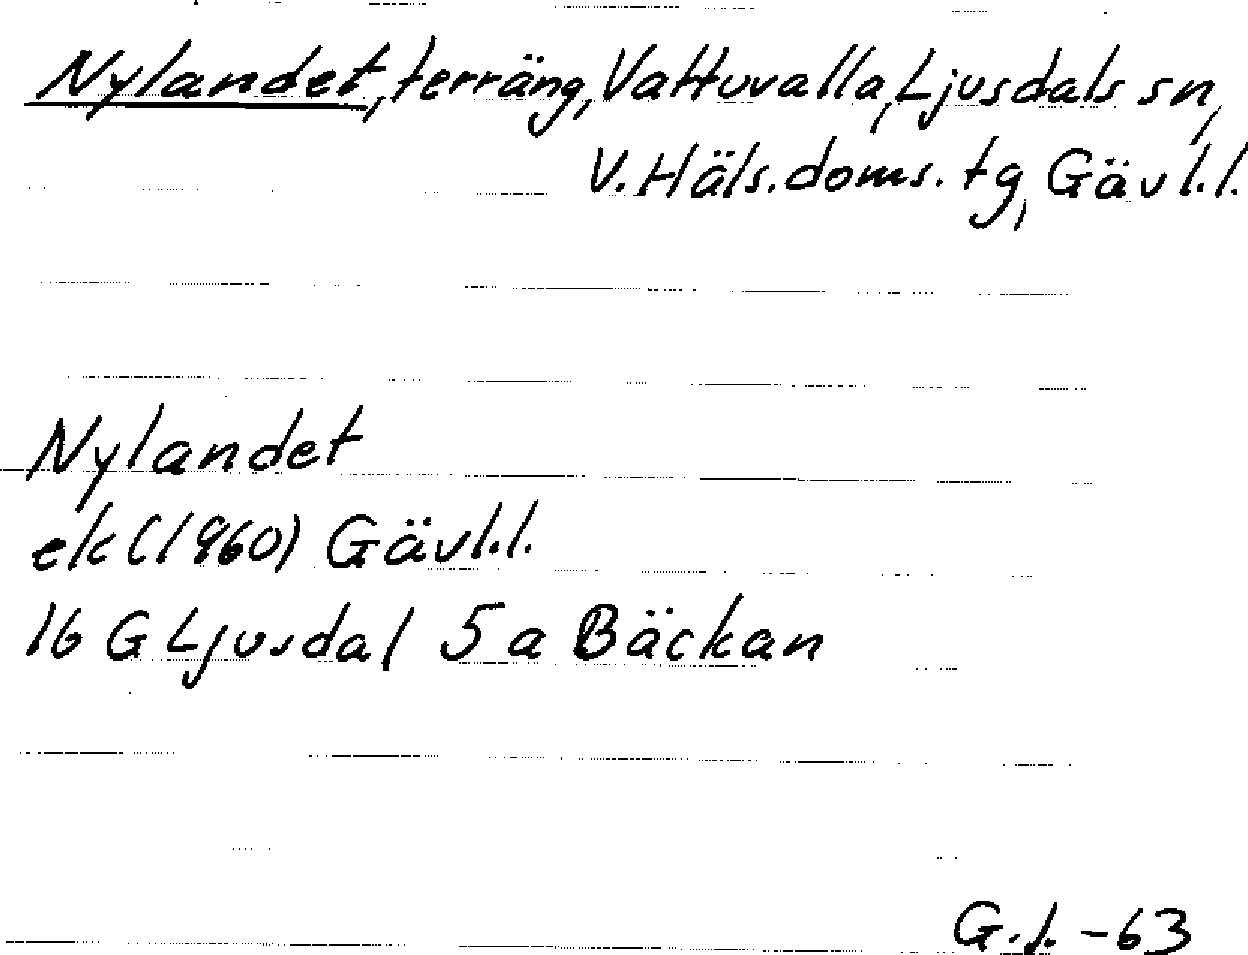 Nylandet, terräng, Vattuvalla, Ljusdals sn,
V. Häls. doms. tg, Gävl. l.
Nylandet
ek (1960) Gävl. l.
16 G Ljusdal 5 a Bäckan
G. J. -63